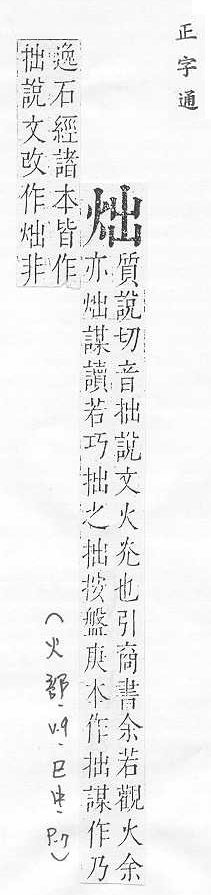 正字通
炪
質說切音拙說文火灮也引商書余若觀火余
亦炪謀讀若巧拙之拙按盤庚本作拙謀作乃
逸石經諸本皆作
拙說文改作炪非
(火部·V.9·巳中·P.7)